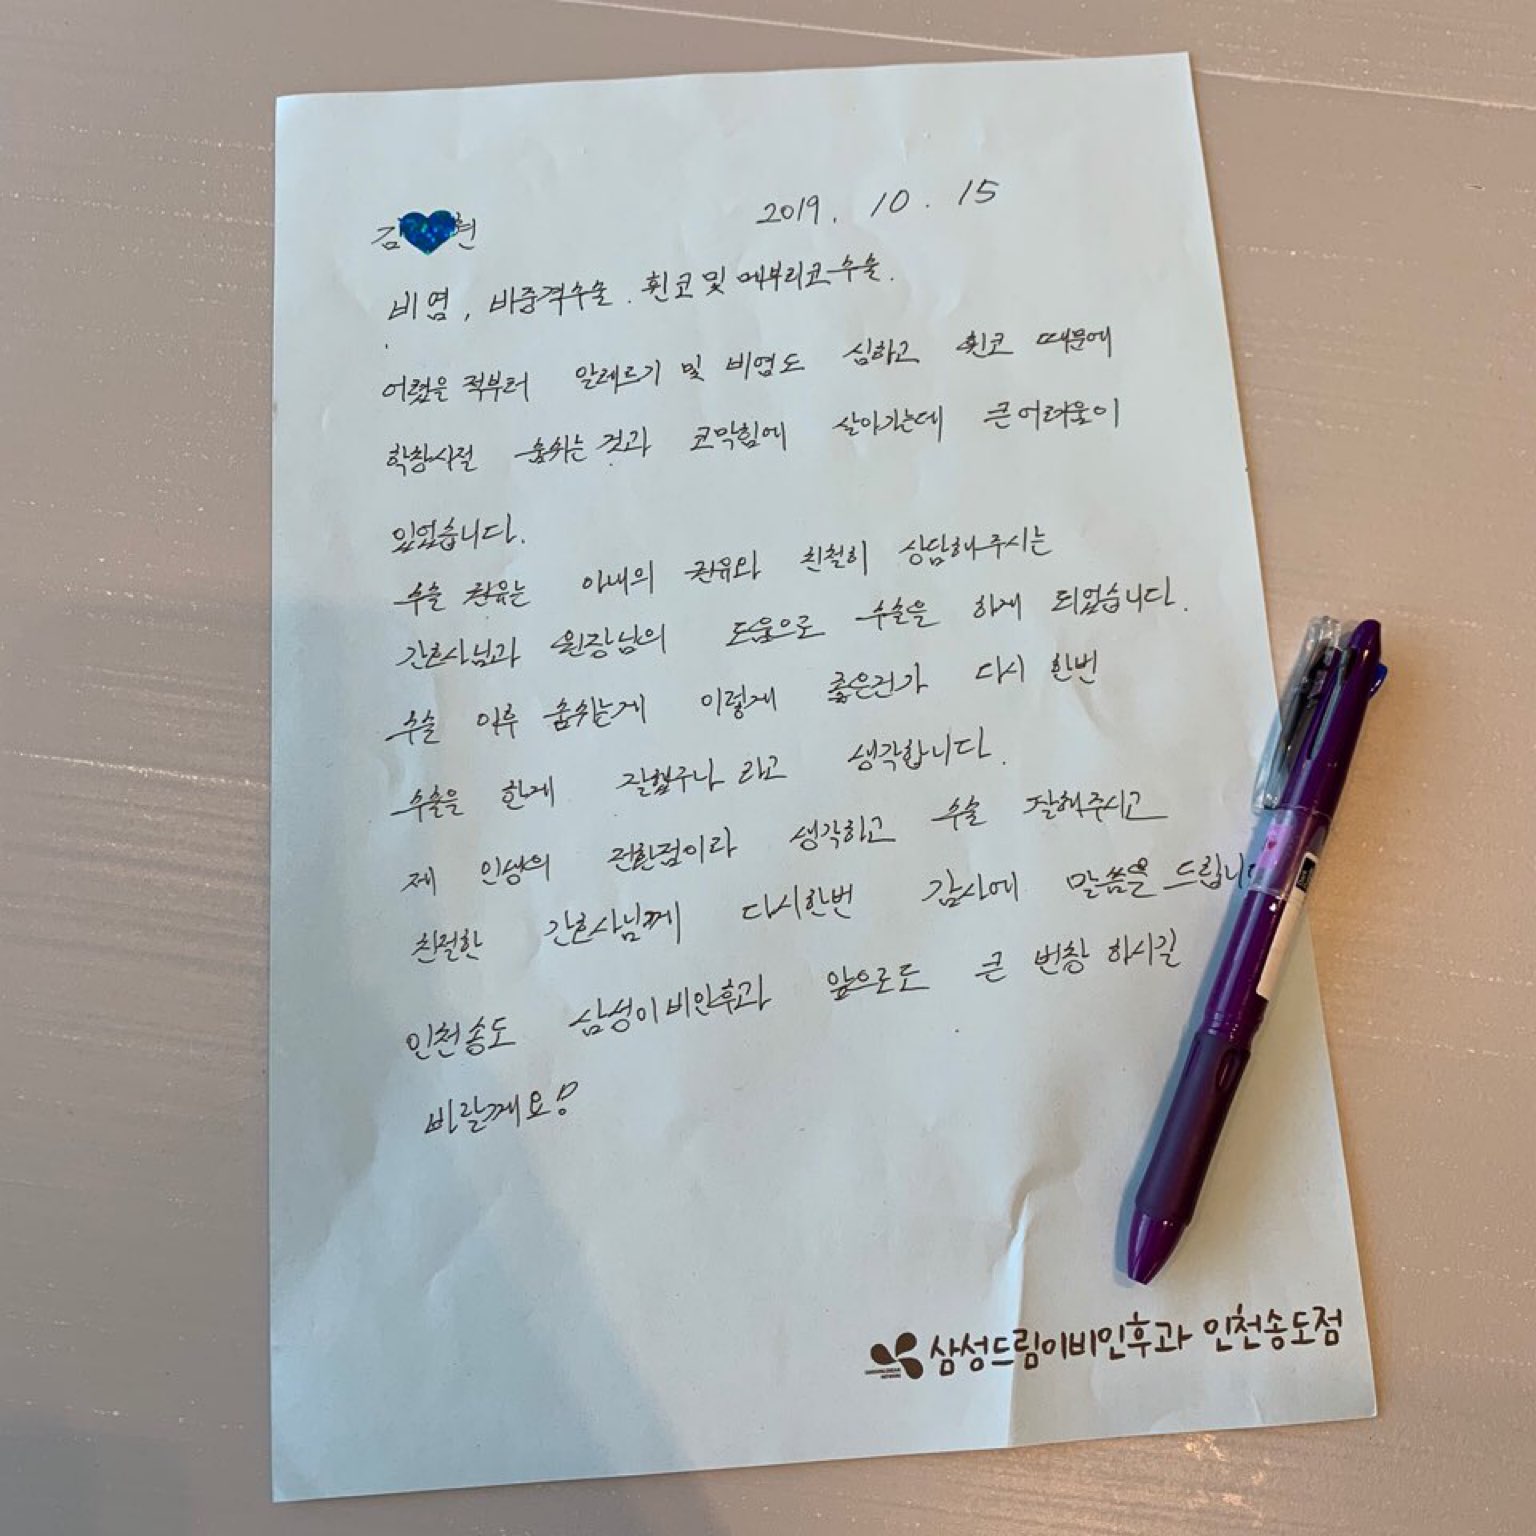 김 현 2019. 10. 15
비염, 비중격수술. 휜코 및 메부리코수술.
어렸을 적부터 알레르기 및 비염도 심하고 휜코 때문에
학창시절 숨쉬는 것과 코막힘에 살아가는데 큰 어려움이
있었습니다.
수술 권유는 아내의 권유와 친철히 상담해주시는
간호사님과 원장님의 도움으로 수술을 하게 되었습니다.
수술 이후 숨쉬는게 이렇게 좋은건가 다시 한번
수술을 한게 잘했구나 라고 생각합니다.
제 인생의 전환점이라 생각하고 수술 잘해주시고
친절한 간호사님께 다시한번 감사에 말씀을 드립니
인천송도 삼성이비인후과 앞으로도 큰 번창 하시길
바랄께요!
삼성드림이비인후과 인천송도점